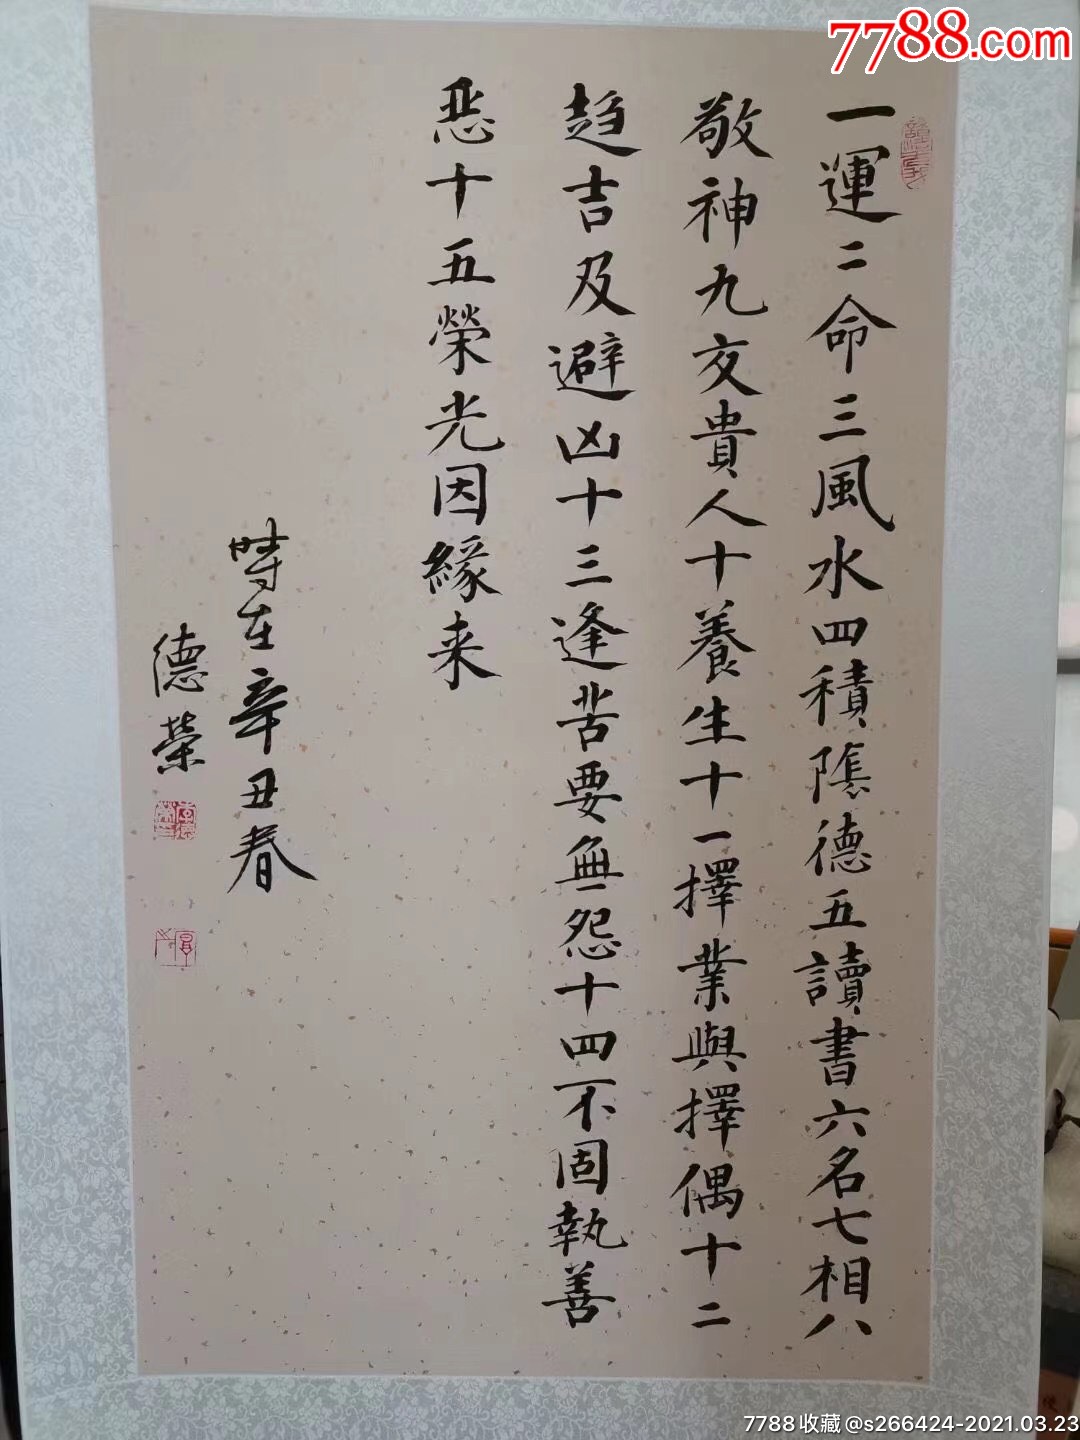 7788.com
一運二命三風水四積隂德五讀書六名七相八
敬神九交貴人十養生十一擇業與擇偶十二
趋吉及避凶十三逢苦要無怨十四不固執善
恶十五榮光因緣来
時在辛丑春
德榮
7788收藏@s266424-2021.03.23